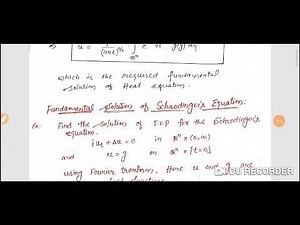 ⇒ u = 1/(4πt)^n/2 ∫ e g(y) dy
ℝⁿ
which is the required fundamental
solution of Heat equation.
Fundamental solution of Schrodinger's Equation:
Find the solution of IVP for the Schrodinger's
equation.
iut + Δu = 0 in ℝⁿ × (0,∞)
and u = g on ℝⁿ × {t=0}
using Fourier transform. Here u and g are
DU RECORDER